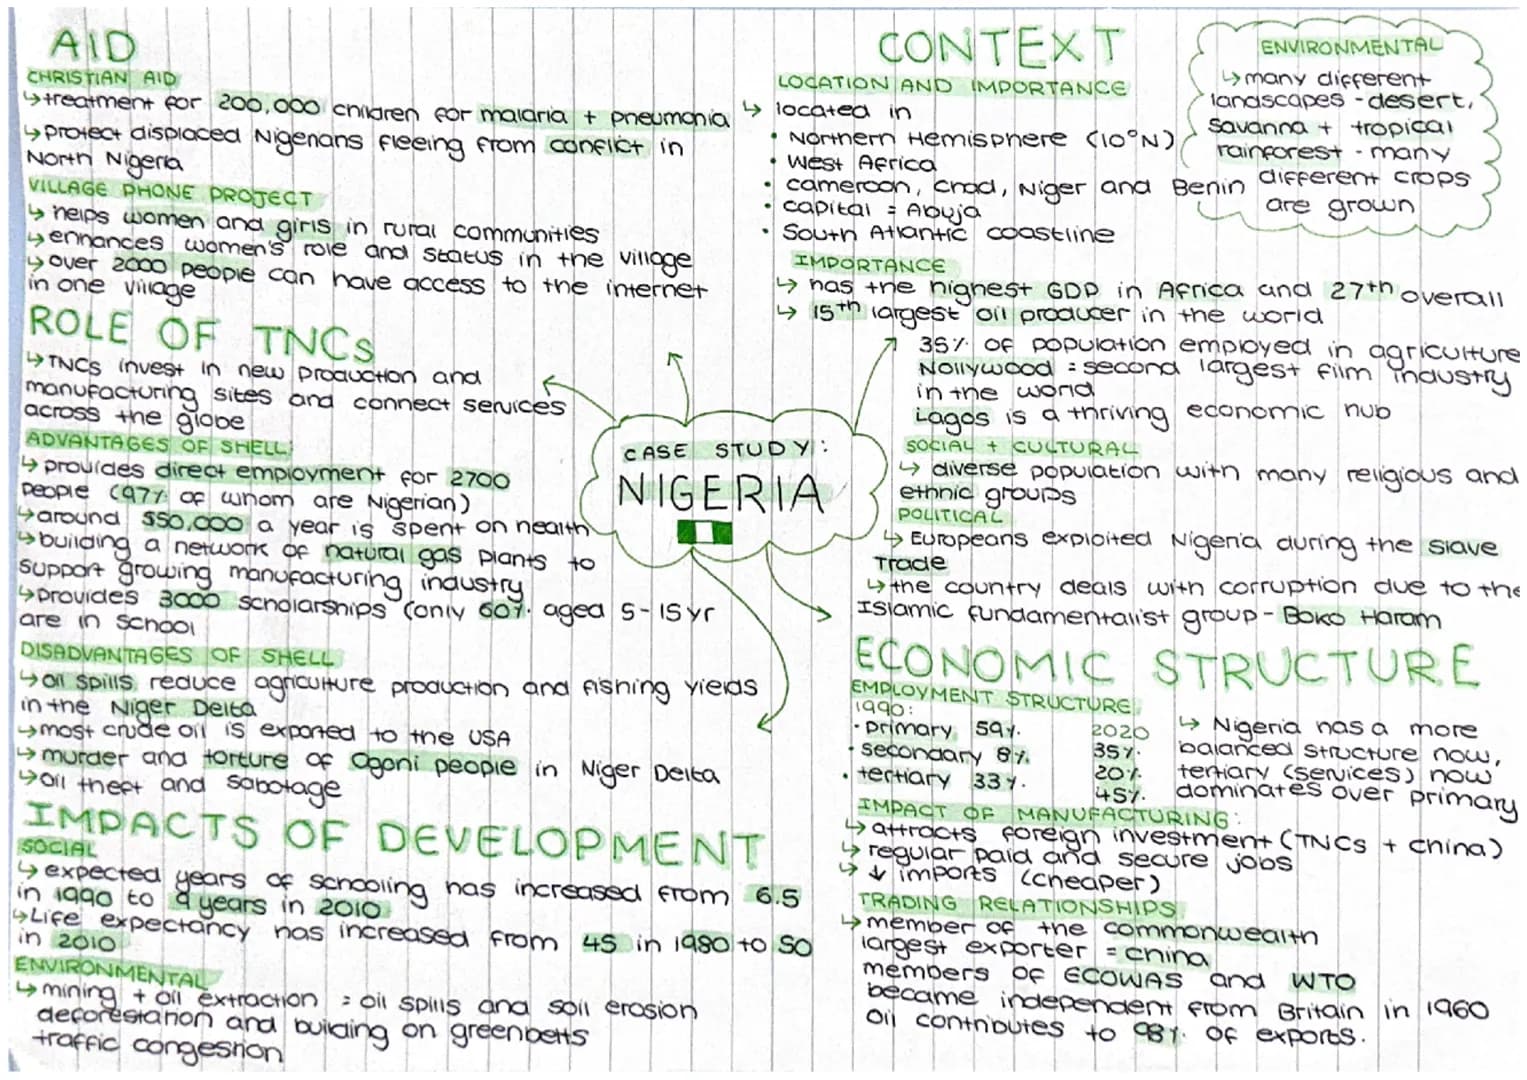 AID
CHRISTIAN AID
↳ treatment for 200,000 children for malaria + pneumonia
↳ protect displaced Nigerians fleeing from conflict in
North Nigeria
VILLAGE PHONE PROJECT
↳ helps women and girls in rural communities
↳ enhances women's role and status in the village
↳ over 2000 people can have access to the internet
in one village
ROLE OF TNCs
↳ TNCs invest in new production and
manufacturing sites and connect services
across the globe
ADVANTAGES OF SHELL:
↳ provides direct employment for 2700
people (97% of whom are Nigerian)
↳ around $50,000 a year is spent on health
↳ building a network of natural gas plants to
support growing manufacturing industry
↳ provides 3000 scholarships (only 60% aged 5-15yr
are in school
DISADVANTAGES OF SHELL
↳ oil spills reduce agriculture production and fishing yields
in the Niger Delta
↳ most crude oil is exported to the USA
↳ murder and torture of Ogoni people in Niger Delta
↳ oil theft and sabotage
IMPACTS OF DEVELOPMENT
SOCIAL
↳ expected years of schooling has increased from 6.5
in 1990 to 9 years in 2010
↳ Life expectancy has increased from 45 in 1980 to 50
in 2010
ENVIRONMENTAL
↳ mining + oil extraction = oil spills and soil erosion
deforestation and building on greenbelts
traffic congestion
CASE STUDY:
NIGERIA
CONTEXT
LOCATION AND IMPORTANCE
↳ located in
• Northern Hemisphere (10°N)
• West Africa
• cameroon, chad, Niger and Benin
• capital = Abuja
• South Atlantic coastline
ENVIRONMENTAL
↳ many different
landscapes - desert,
savanna + tropical
rainforest - many
different crops
are grown
IMPORTANCE
↳ has the highest GDP in Africa and 27th overall
↳ 15th largest oil producer in the world
35% of population employed in agriculture
Nollywood = second largest film industry
in the world
Lagos is a thriving economic hub
SOCIAL + CULTURAL
↳ diverse population with many religious and
ethnic groups
POLITICAL
↳ Europeans exploited Nigeria during the slave
Trade
↳ the country deals with corruption due to the
Islamic fundamentalist group - Boko Haram
ECONOMIC STRUCTURE
EMPLOYMENT STRUCTURE
1990:
• primary 59%
• secondary 8%
• tertiary 33%
2020
35%
20%
45%
↳ Nigeria has a more
balanced structure now,
tertiary (services) now
dominates over primary
IMPACT OF MANUFACTURING:
↳ attracts foreign investment (TNCs + china)
↳ regular paid and secure jobs
↳ ↓ imports (cheaper)
TRADING RELATIONSHIPS
↳ member of the commonwealth
largest exporter = china
members of ECOWAS and WTO
became independent from Britain in 1960
oil contributes to 98% of exports.